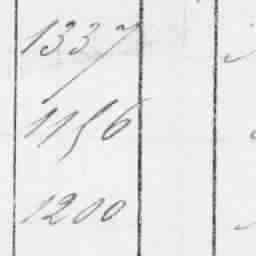 1337
1156
1200